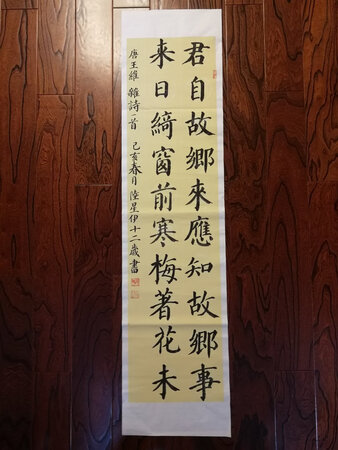 君自故鄉來應知故鄉事
來日綺窗前寒梅著花未
唐王維 雜詩一首 己亥春月 陸星伊十二歲書